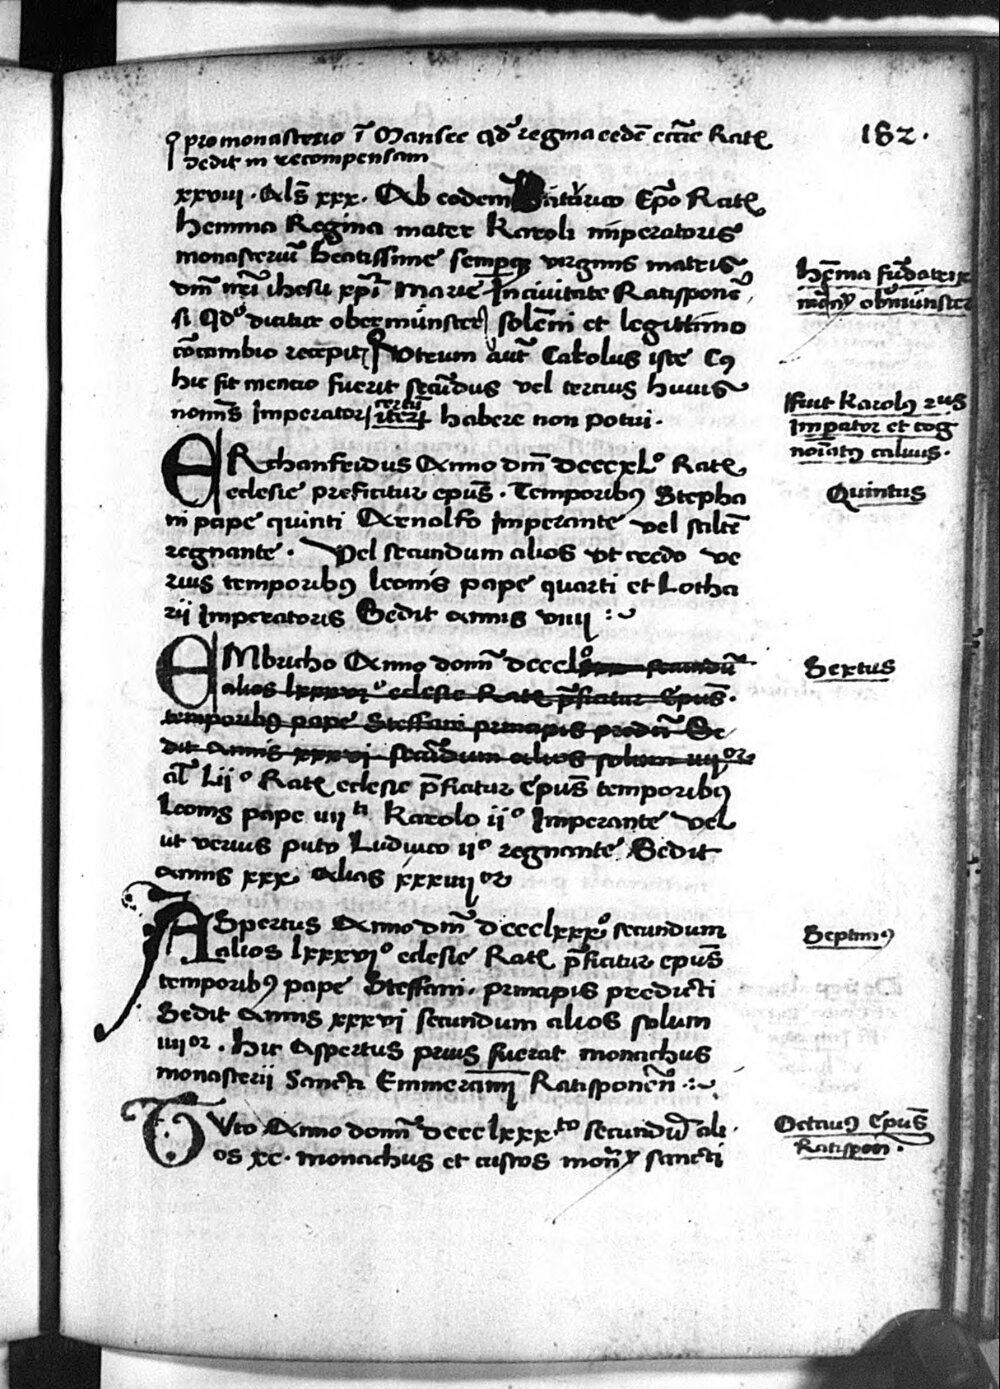 182.
pro monasterio ī Mansee qd̄ regina eedē eccīe Ratꝭ
dedit in recompensam
xxviii. als̄ xxx. Ab eodem Bat̄urico Ep̄o Ratꝭ
hemma Regina mater Karoli imperatoris
monasteriū beatissime semperqꝫ virginis matris
dn̄i nr̄i ihesu xp̄i Marie In ciuitate Ratisponē
si Qdo dicitur obermünster solēni et legittimo
cōcambio recepit Vtrum aut̄ Carolus iste Cꝯ
hic fit mencio fuerit secūdus vel tercius huius
nomīs Imperator certū iteꝝ habere non potui.
hem̄a fūdatrix
mōn̄ obmünster
ffuit Karolꝯ 2us
Imp̄ator et cog
noīatꝯ caluus.
ERchanfridus Anno dn̄i dcccxLo Ratꝭ
eclesie preficitur epūs. Temporibꝯ Stepha
ni pape quinti Arnolfo Imperante vel saltē
regnante. Vel secundum alios vt credo ve
rius temporibꝯ leonis pape quarti et Lotha
rij Imperatoris Sedit annis viiij
Quintus
EMbricho Anno domī dccclo secundū
alios lxxxvjo eclesie Ratꝭ p̄ficitur Epūs.
temporibꝯ pape Steffani principis predicti Se
dit Annis xxxvj secūdum alios solum iiijor
al̄ Lijo Ratꝭ eclesie p̄ficitur Epūs temporibꝯ
Leonis pape iiijti Karolo ijo Imperante Vel
ut verius puto Ludwico ijo regnante Sedit
annis xxx Alias xxxiiijor
Sextus
ASpertus Anno dn̄i dccclxxxo secundum
alios lxxxvjo eclesie Ratꝭ p̄ficitur epūs
temporibꝯ pape Steffani. principis predicti
Sedit Annis xxxvj secundum alios solum
iiijor. Hic Aspertus prius fuerat monachus
monasterij Sancti Emmerāmi Ratisponēn̄
Septimꝯ
TVto Anno domī dccclxxxto secundū ali
os xc. monachus et custos mon̄ sancti
Octauꝯ Epūs
Ratispon̄.